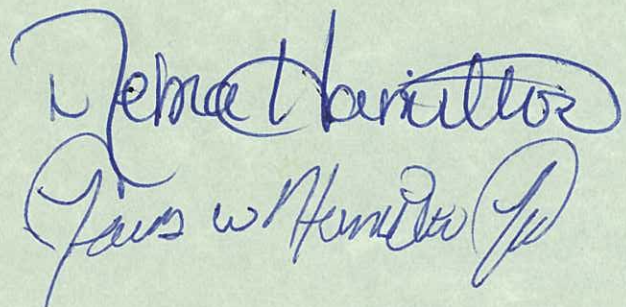 Debra Hamilton
James W Hamilton Jr